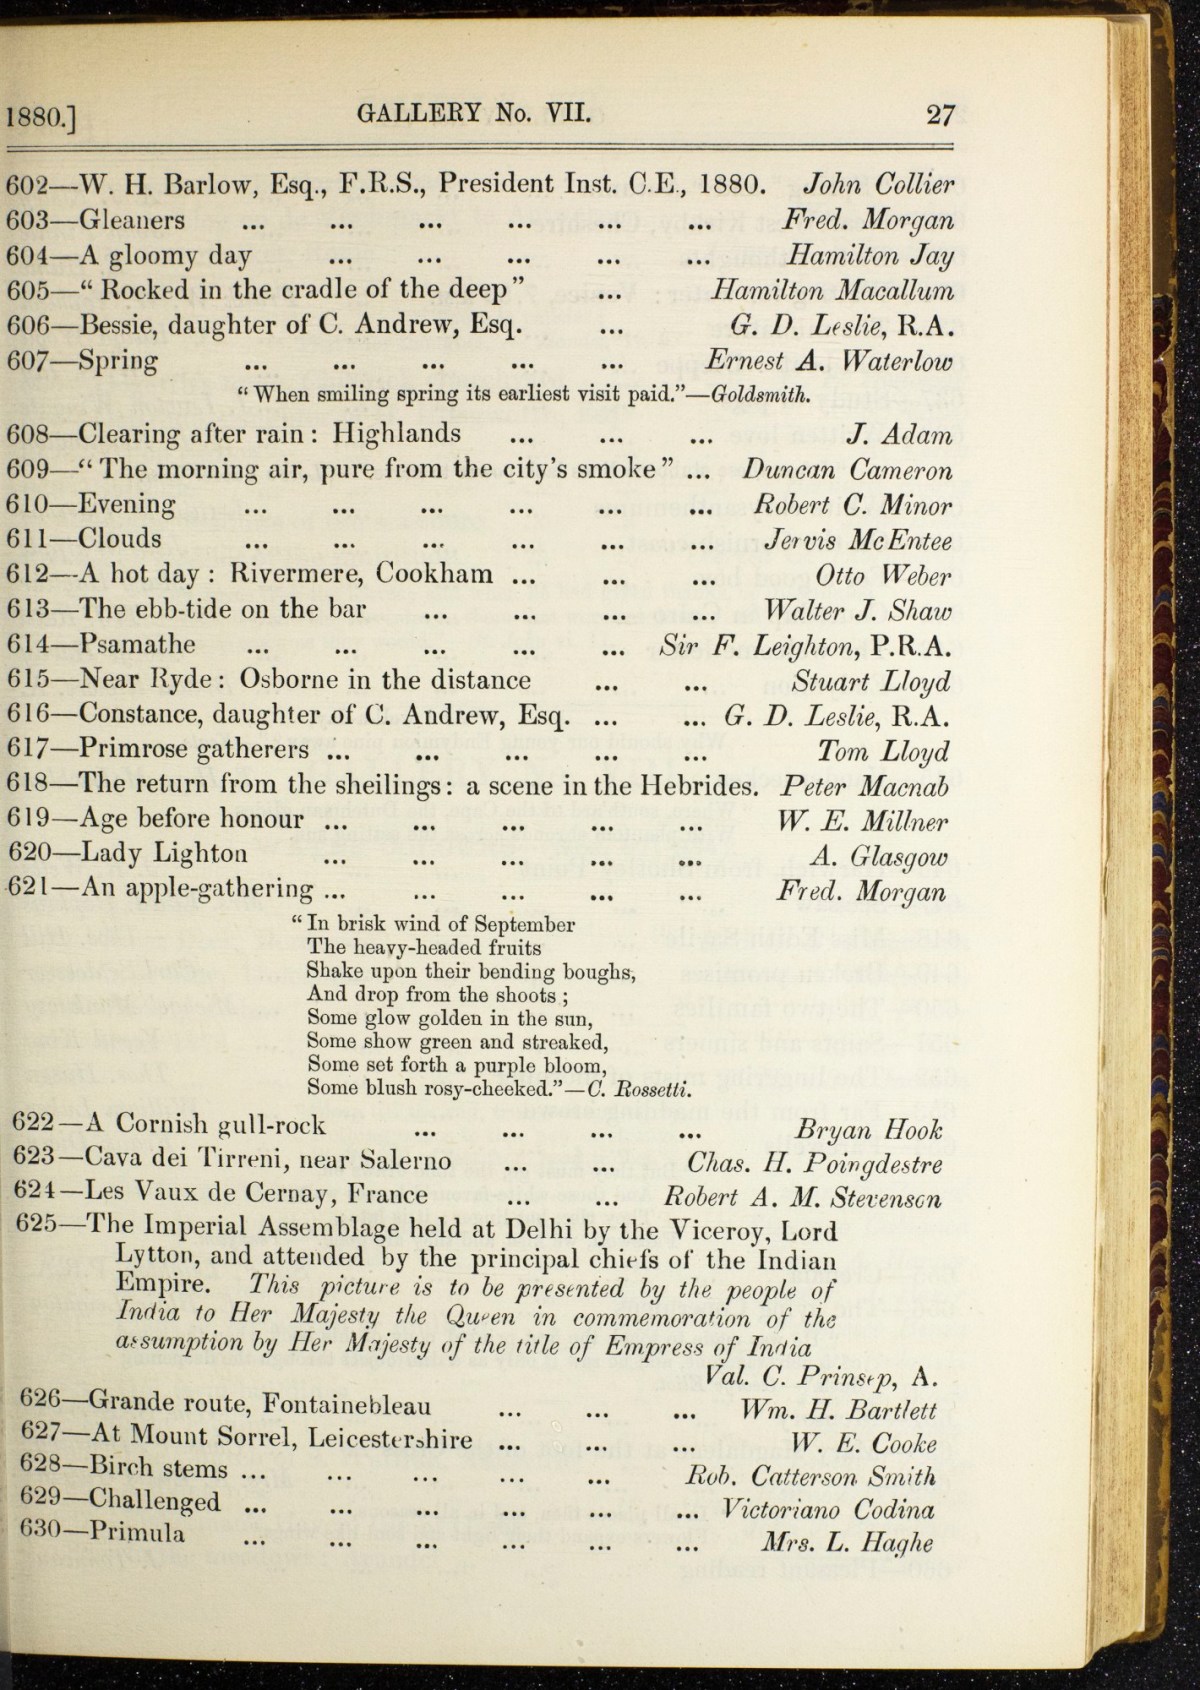 1880.] GALLERY No. VII. 27
602—W. H. Barlow, Esq., F.R.S., President Inst. C.E., 1880. John Collier
603—Gleaners ... ... ... ... ... ... Fred. Morgan
604—A gloomy day ... ... ... ... ... Hamilton Jay
605—“Rocked in the cradle of the deep” ... Hamilton Macallum
606—Bessie, daughter of C. Andrew, Esq. ... G. D. Leslie, R.A.
607—Spring ... ... ... ... ... Ernest A. Waterlow
“When smiling spring its earliest visit paid.”—Goldsmith.
608—Clearing after rain: Highlands ... ... ... J. Adam
609—“The morning air, pure from the city's smoke” ... Duncan Cameron
610—Evening ... ... ... ... ... ... Robert C. Minor
611—Clouds ... ... ... ... ... ... Jervis McEntee
612—A hot day: Rivermere, Cookham ... ... ... Otto Weber
613—The ebb-tide on the bar ... ... ... ... Walter J. Shaw
614—Psamathe ... ... ... ... ... Sir F. Leighton, P.R.A.
615—Near Ryde: Osborne in the distance ... ... Stuart Lloyd
616—Constance, daughter of C. Andrew, Esq. ... ... G. D. Leslie, R.A.
617—Primrose gatherers ... ... ... ... ... Tom Lloyd
618—The return from the sheilings: a scene in the Hebrides. Peter Macnab
619—Age before honour ... ... ... ... ... W. E. Millner
620—Lady Lighton ... ... ... ... ... A. Glasgow
621—An apple-gathering ... ... ... ... ... Fred. Morgan
“In brisk wind of September
The heavy-headed fruits
Shake upon their bending boughs,
And drop from the shoots;
Some glow golden in the sun,
Some show green and streaked,
Some set forth a purple bloom,
Some blush rosy-cheeked.”—C. Rossetti.
622—A Cornish gull-rock ... ... ... ... Bryan Hook
623—Cava dei Tirreni, near Salerno ... ... Chas. H. Poingdestre
624—Les Vaux de Cernay, France ... ... Robert A. M. Stevenson
625—The Imperial Assemblage held at Delhi by the Viceroy, Lord
Lytton, and attended by the principal chiefs of the Indian
Empire. This picture is to be presented by the people of
India to Her Majesty the Queen in commemoration of the
assumption by Her Majesty of the title of Empress of India
Val. C. Prinsep, A.
626—Grande route, Fontainebleau ... ... ... Wm. H. Bartlett
627—At Mount Sorrel, Leicestershire ... ... ... W. E. Cooke
628—Birch stems ... ... ... ... ... Rob. Catterson Smith
629—Challenged ... ... ... ... ... ... Victoriano Codina
630—Primula ... ... ... ... ... ... Mrs. L. Haghe